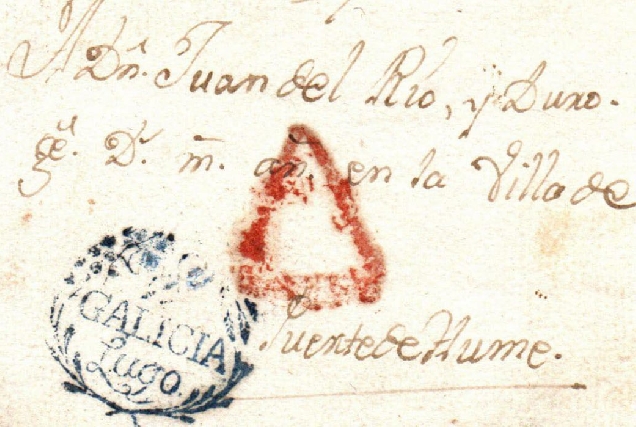 A Dn. Juan del Río, y Duro.
ge. Ds. m. an. en la Villa de
Puentede Hume.
GALICIA
Lugo.